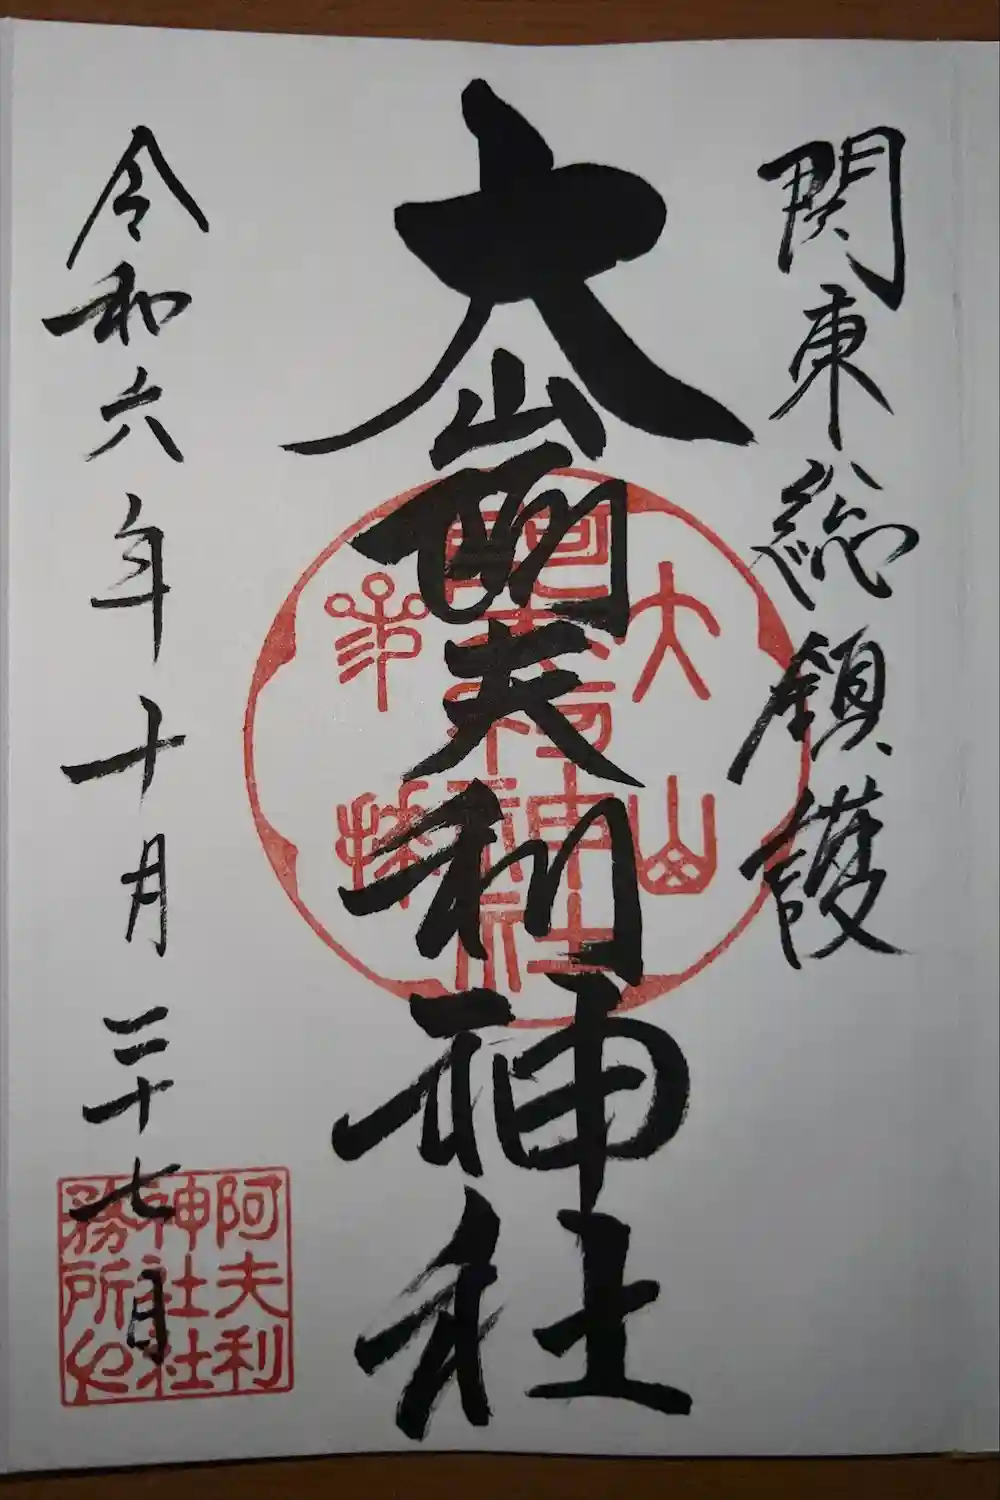 関東総鎮護
大山阿夫利神社
令和六年十月二十七日
大山
阿夫利神社
阿夫利
神社社
務所也